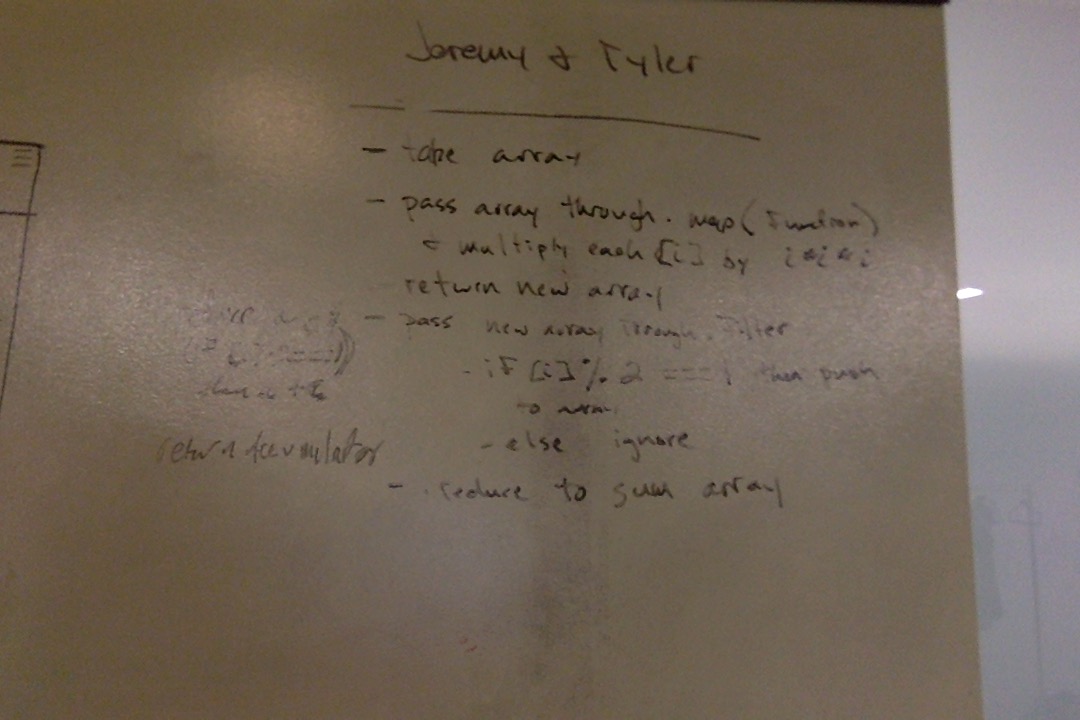 Jeremy & Tyler
- take array
- pass array through .map(Function)
& multiply each [i] by i*i*i
return new array
- pass new array through .Filter
- if [i] % 2 === 1 then push
to array
- else ignore
- .reduce to sum array
return accumulator